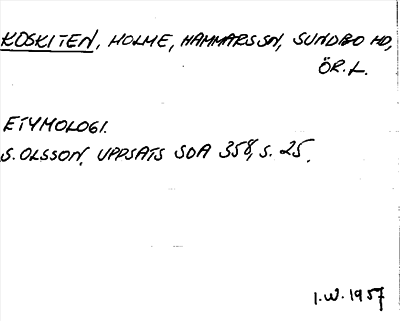 KOSKITEN, HOLME, HAMMARS SN, SUNDBO HD,
ÖR.L.
ETYMOLOGI.
S. OLSSON. UPPSATS SOA 358, S. 25.
I.W. 1957